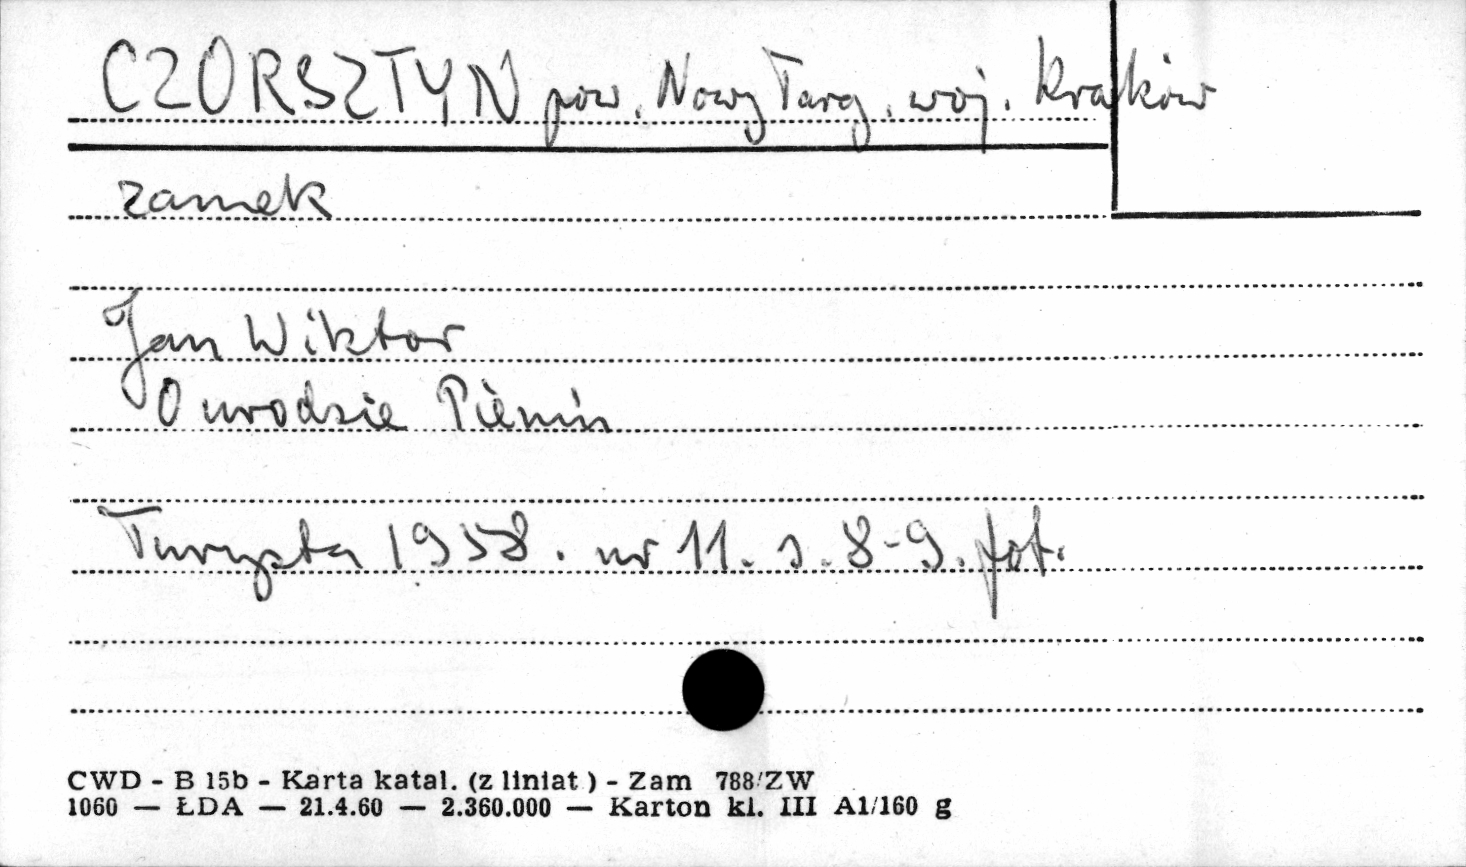 CZORSZTYN pow. Nowy Targ. woj. Kraków
zamek
Jan Wiktor
O urodzie Pienin
Turysta 1958. nr 11. s. 8-9. fot.
CWD - B 15b - Karta katal. (z liniat ) - Zam 788/ZW
1060 — ŁDA — 21.4.60 — 2.360.000 — Karton kl. III A1/160 g